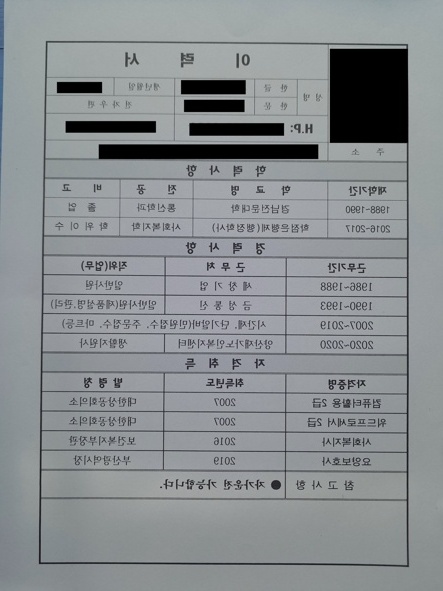 이 력 서
성 명 한 글 생년월일
한 문 전 자 우 편
H.P:
주 소
학 력 사 항
재학기간 학 교 명 전 공 비 고
1988~1990 경남전문대학 통신학과 졸 업
2016-2017 학점은행제(행정학사) 사회복지학 학 위 이 수
경 력 사 항
근무기간 근 무 처 직위(업무)
1986~1988 세 창 기 업 일반사원
1990~1993 금 성 통 신 일반사원(제품설명.관리)
2007~2019 시간제. 단기알바(민원접수. 주문접수. 마트등)
2020~2020 양산재가노인복지센터 생활지원사
자 격 취 득
자격증명 취득년도 발 령 청
컴퓨터활용 2급 2007 대한상공회의소
워드프로세서 2급 2007 대한상공회의소
사회복지사 2016 보건복지부장관
요양보호사 2019 부산광역시장
참 고 사 항 ● 자가운전 가능합니다.